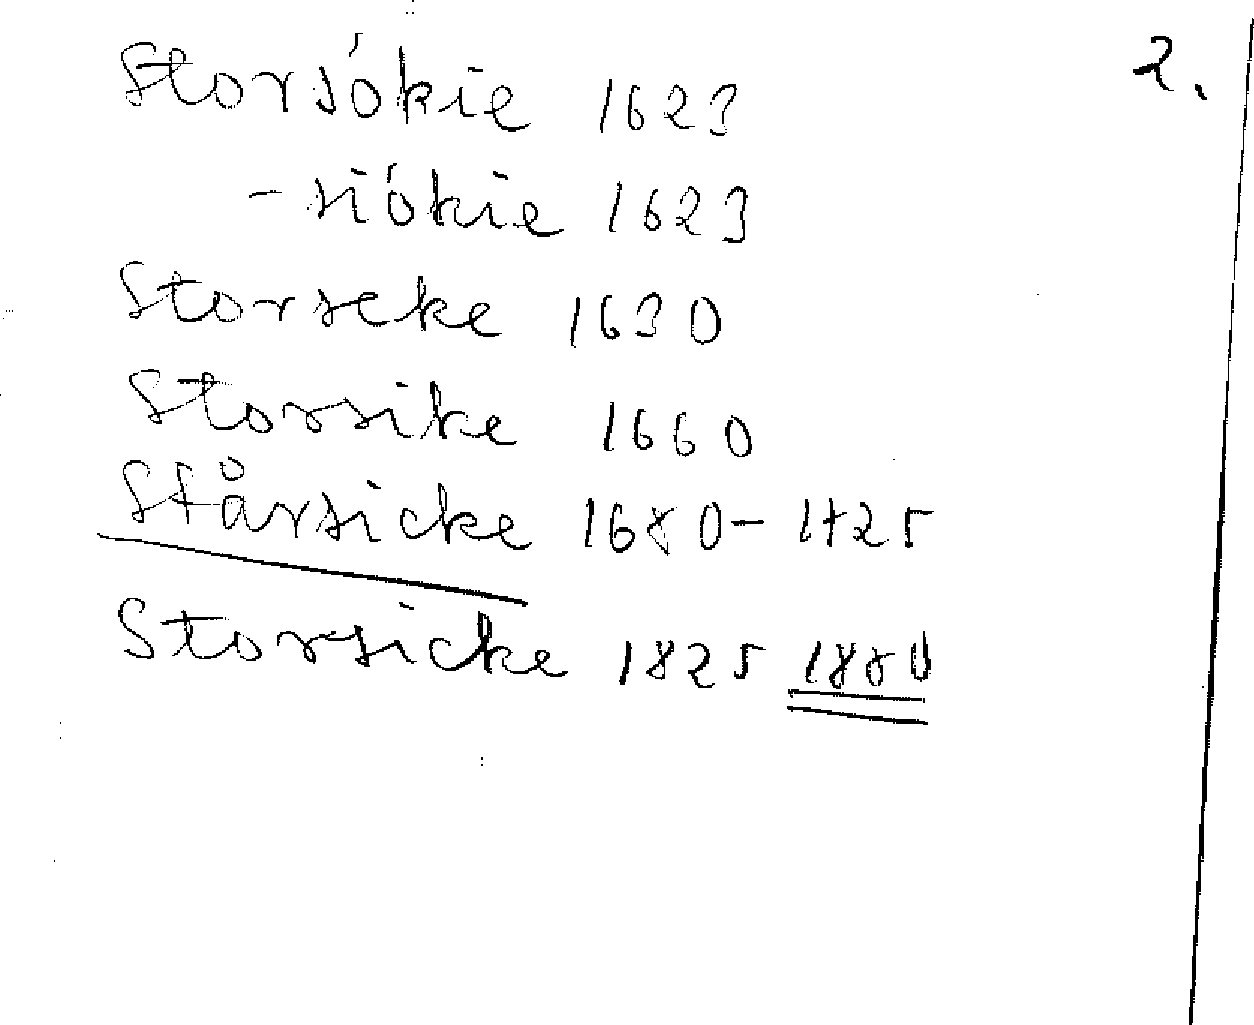 2.
Storsókie 1623
-siókie 1623
Storseke 1630
Storsike 1660
Stårsicke 1680-1725
Storsicke 1825 1880